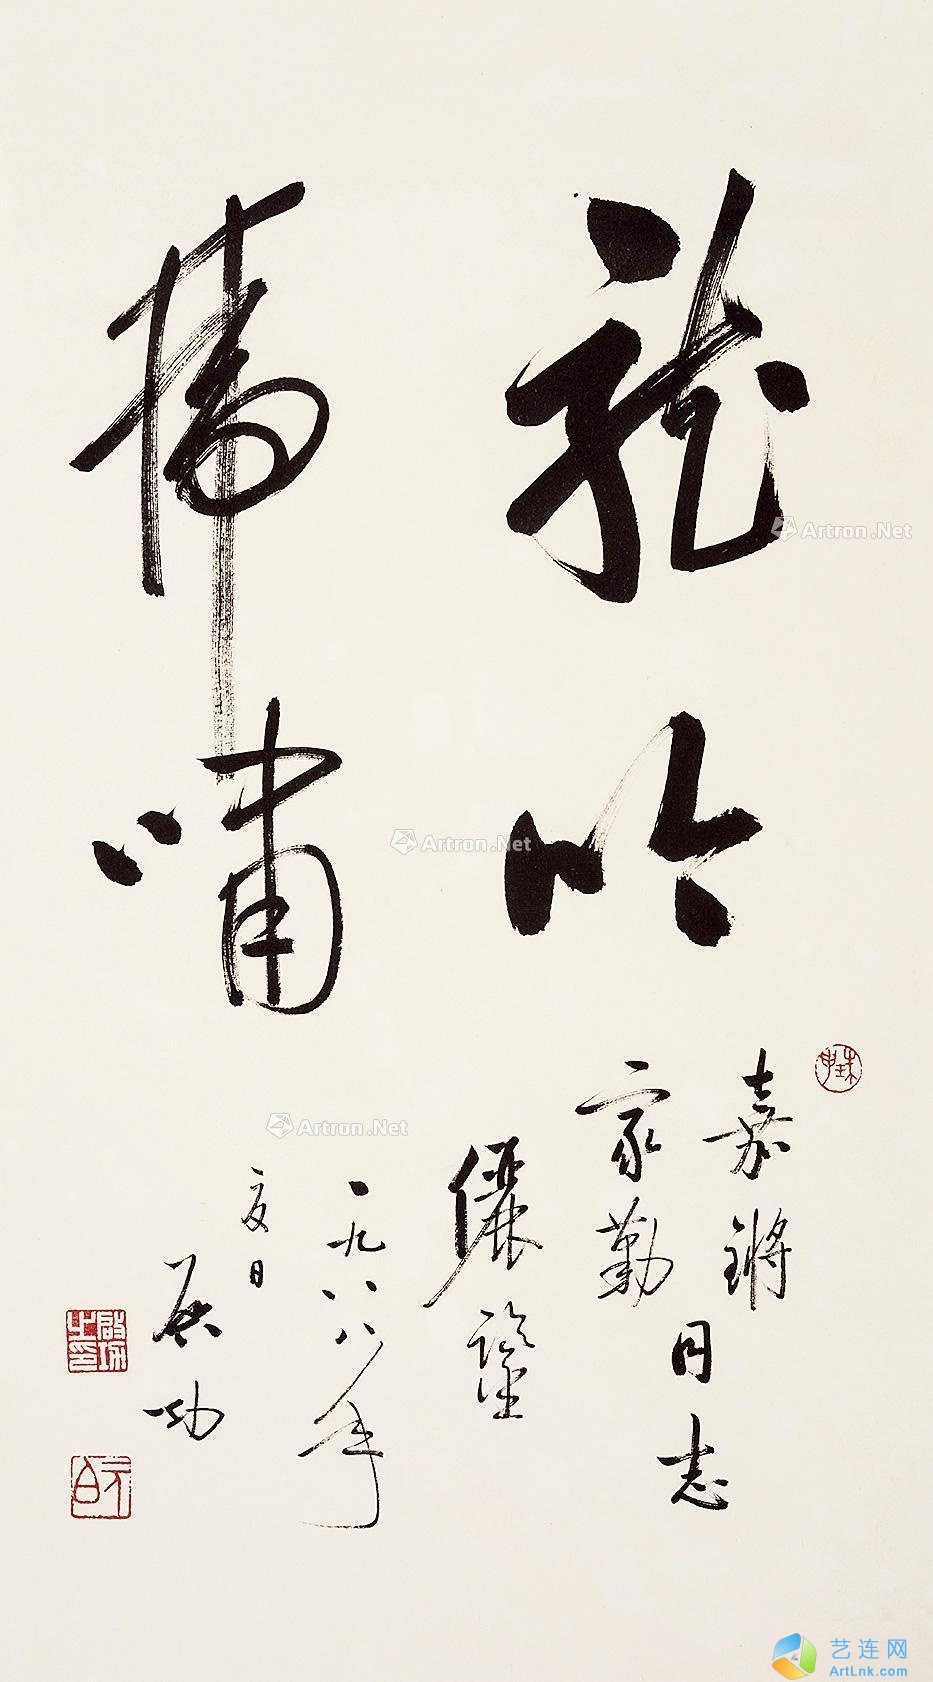 龙吟
虎啸
嘉锵
家勤
同志
俪鉴
一九八八年
夏日
启功
启功之印
元白
Artron.Net
Artron.Net
Artron.Net
艺连网
ArtLnk.com